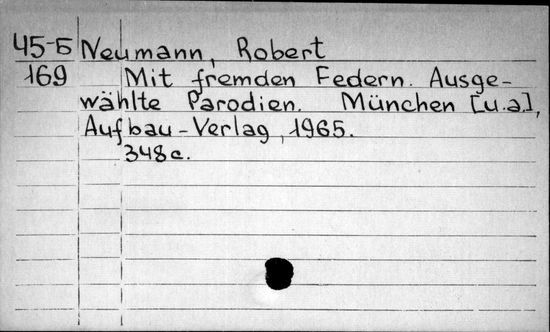 45-Б Neumann, Robert
169 Mit fremden Federn. Ausge-
wählte Parodien. München [u.a.],
Aufbau-Verlag, 1965.
348c.